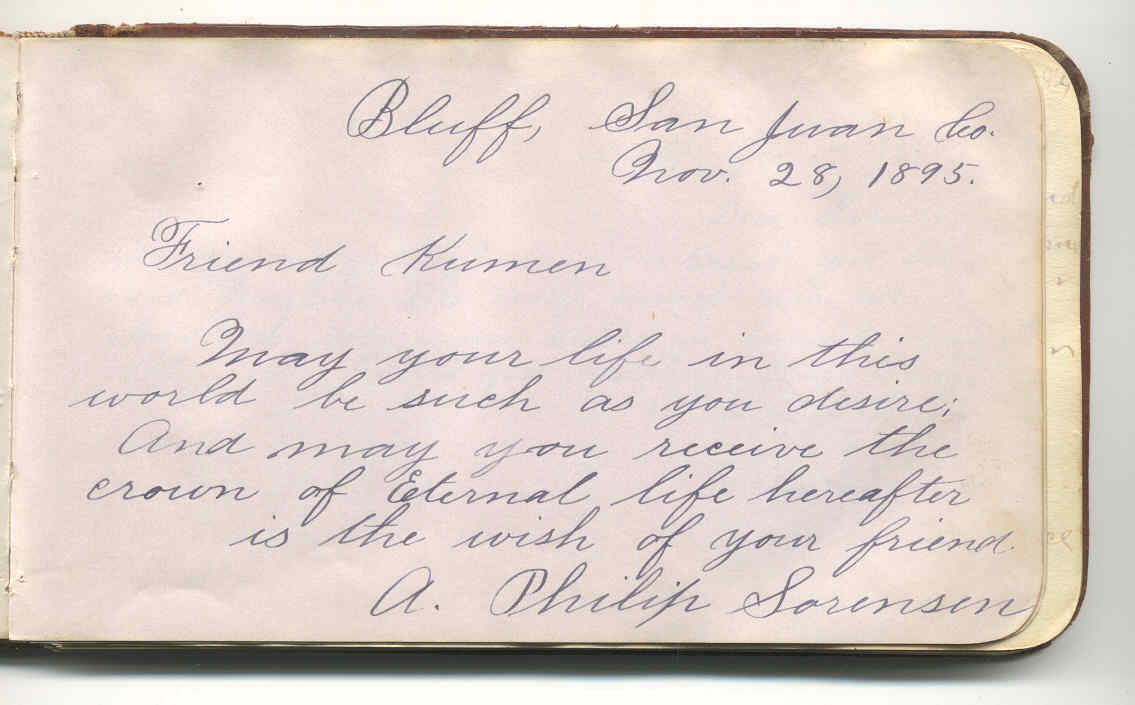 Bluff, San Juan Co.
Nov. 28, 1895.
Friend Kumen
May your life in this
world be such as you desire;
And may you receive the
crown of Eternal life hereafter
is the wish of your friend.
A. Philip Sorensen